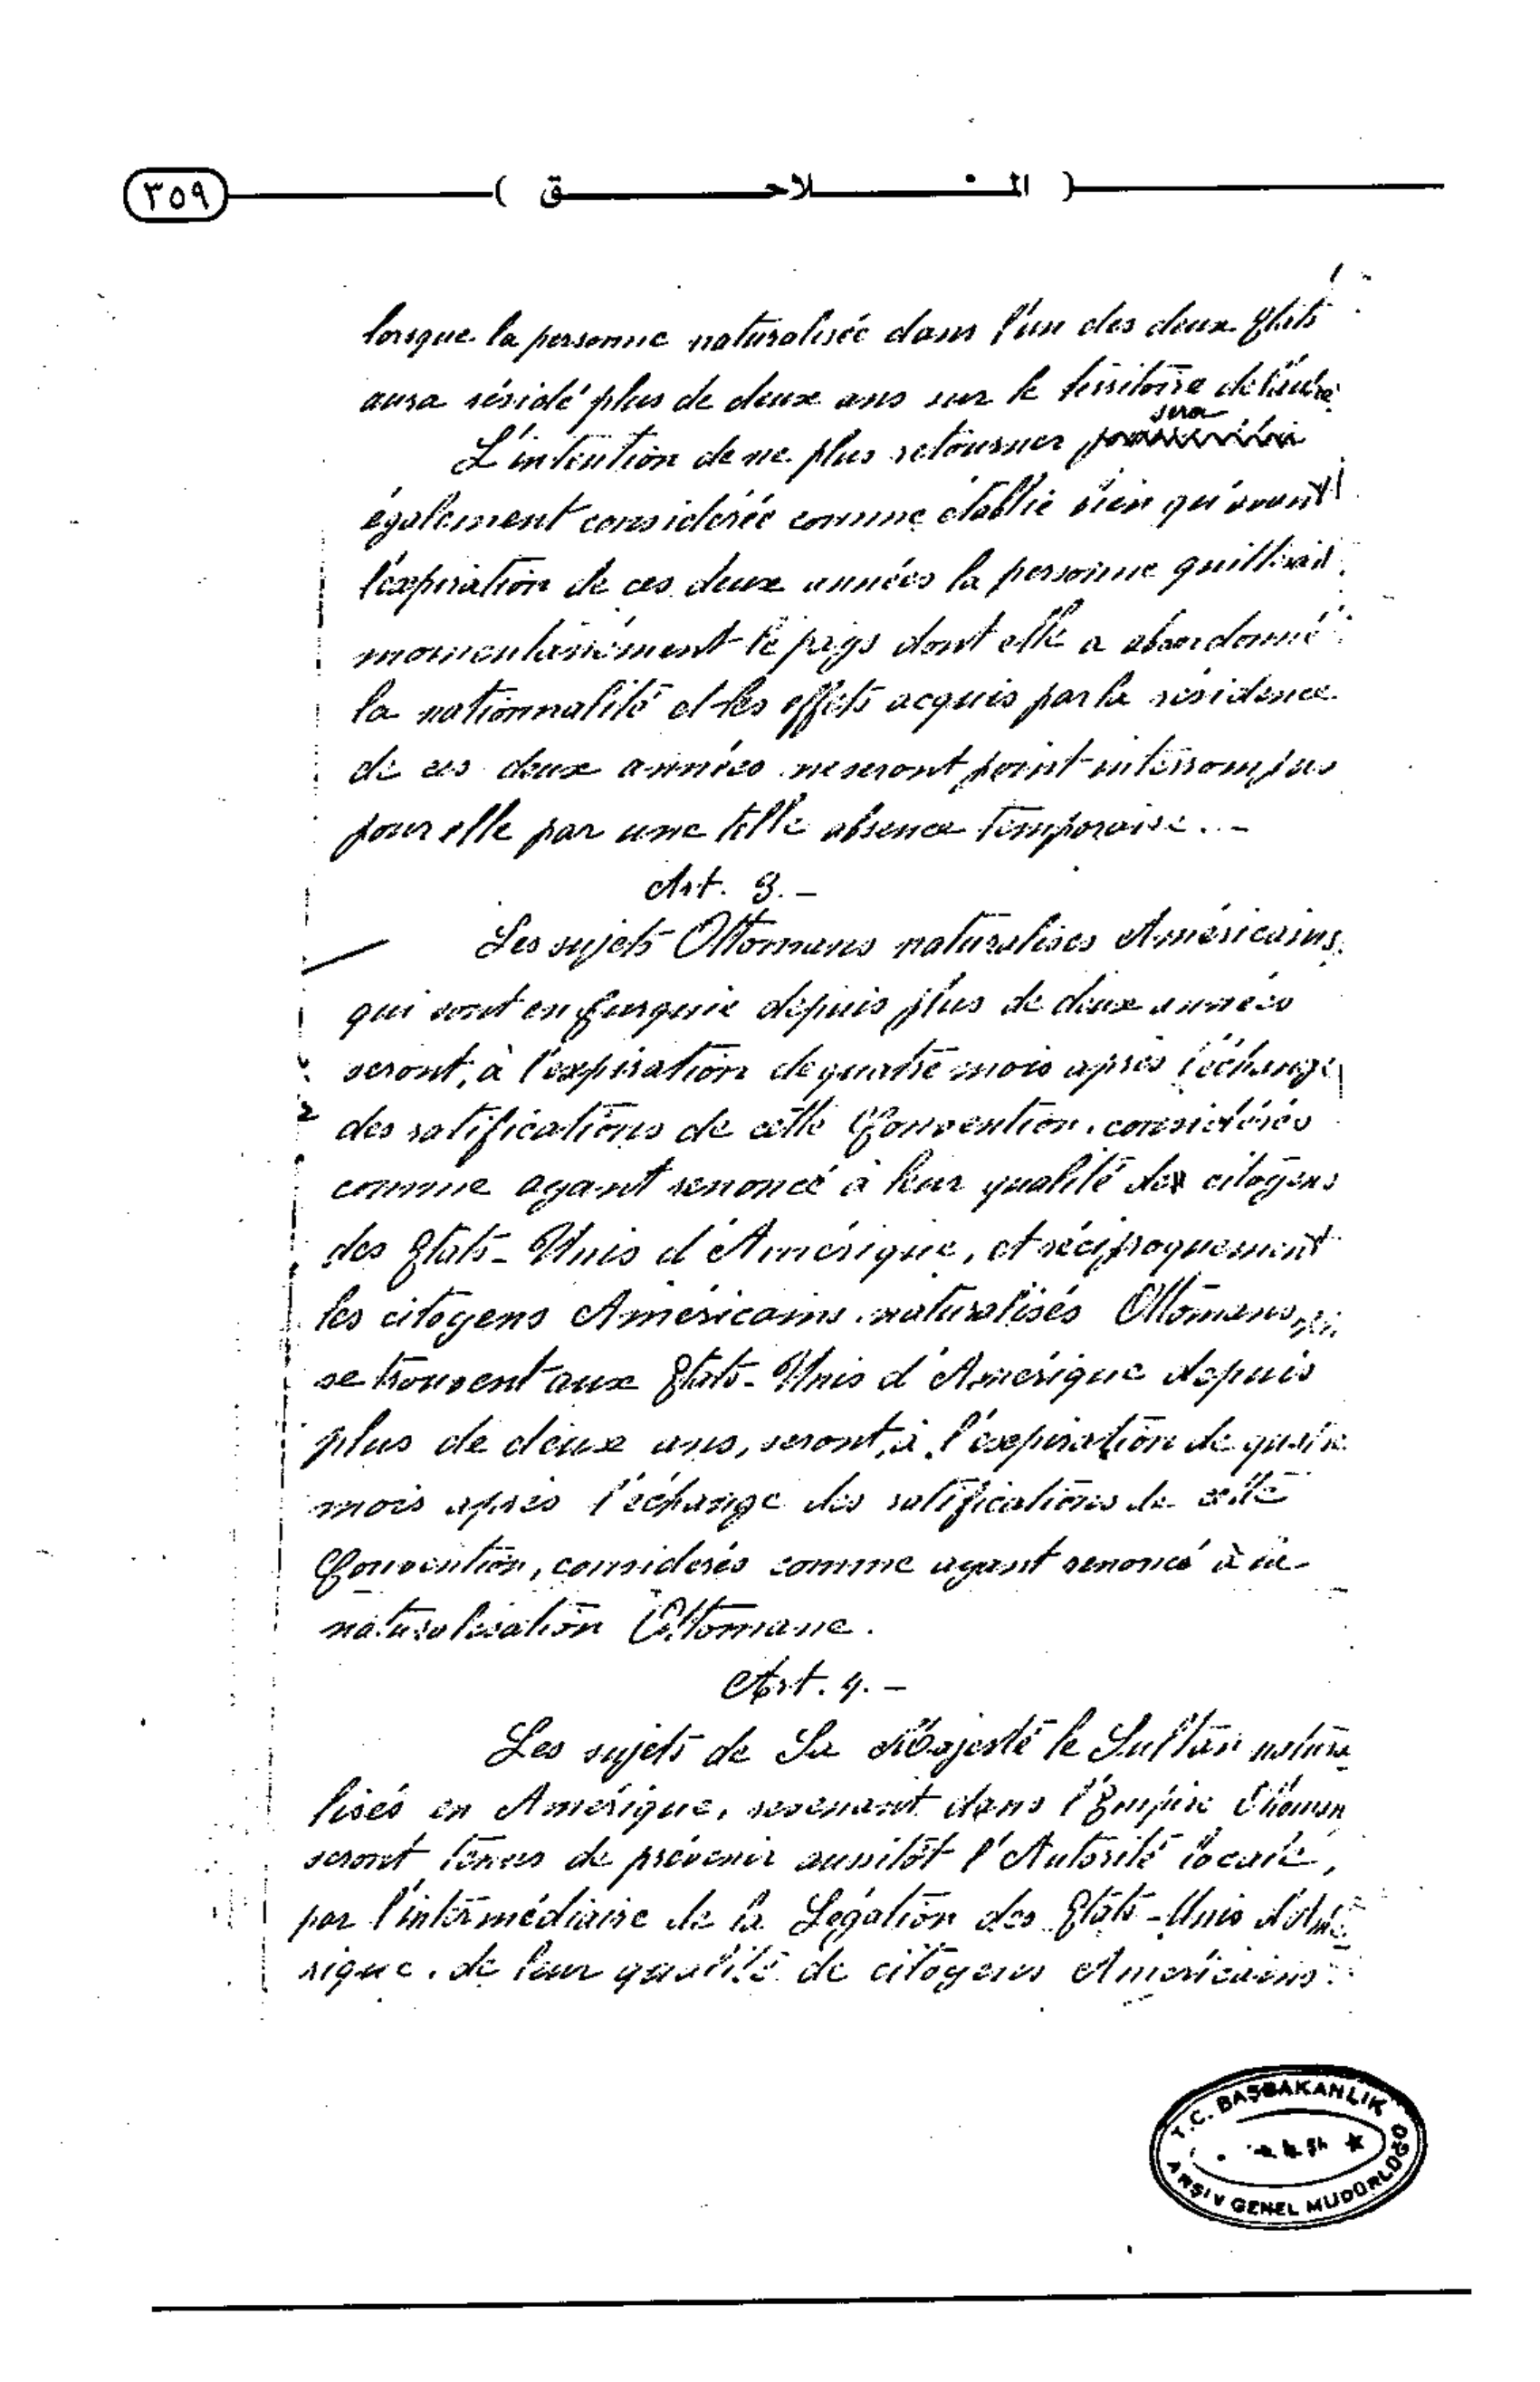 ٣٥٩
( الملاحق )
lorsque la personne naturalisée dans l'un des deux Etats
aura résidé plus de deux ans sur le territoire de l'autre.
sera
L'intention de ne plus retourner
également considérée comme établie bien qu'avant
l'expiration de ces deux années la personne quitterait
momentanément le pays dont elle a abandonné
la nationnalité et les effets acquis par la résidence
de ces deux années ne seront point interrompus
pour elle par une telle absence temporaire. -
Art. 3. -
Les sujets Ottomans naturalisés Américains
qui sont en Turquie depuis plus de deux années
seront, à l'expiration de quatre mois après l'échange
des ratifications de cette Convention, considérés
comme ayant renoncé à leur qualité de citoyens
des Etats-Unis d'Amérique, et réciproquement
les citoyens Américains naturalisés Ottomans, qui
se trouvent aux Etats-Unis d'Amérique depuis
plus de deux ans, seront, à l'expiration de quatre
mois après l'échange des ratifications de cette
Convention, considérés comme ayant renoncé à la
naturalisation Ottomane.
Art. 4. -
Les sujets de Sa Majesté le Sultan natura
lisés en Amérique, revenant dans l'Empire Ottoman
seront tenus de prévenir aussitôt l'Autorité locale,
par l'intermédiaire de la Légation des Etats-Unis d'Amé
rique, de leur qualité de citoyens Américains.
T.C. BAŞBAKANLIK
ARŞİV GENEL MÜDÜRLÜĞÜ